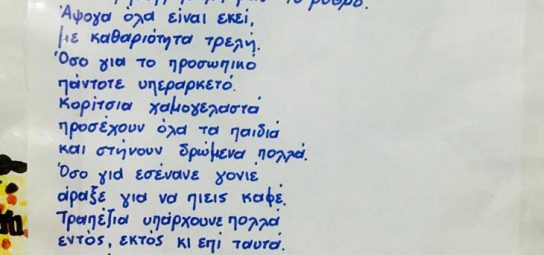 το ρυθμό.
Άψογα όλα είναι εκεί,
με καθαριότητα τρελή.
Όσο για το προσωπικό
πάντοτε υπεραρκετό.
Κορίτσια χαμογελαστά
προσέχουν όλα τα παιδιά
και στήνουν δρώμενα πολλά.
Όσο για εσένανε γονιέ
άραξε για να πιεις καφέ.
Τραπέζια υπάρχουνε πολλά
εντός, εκτός κι επί ταυτά.